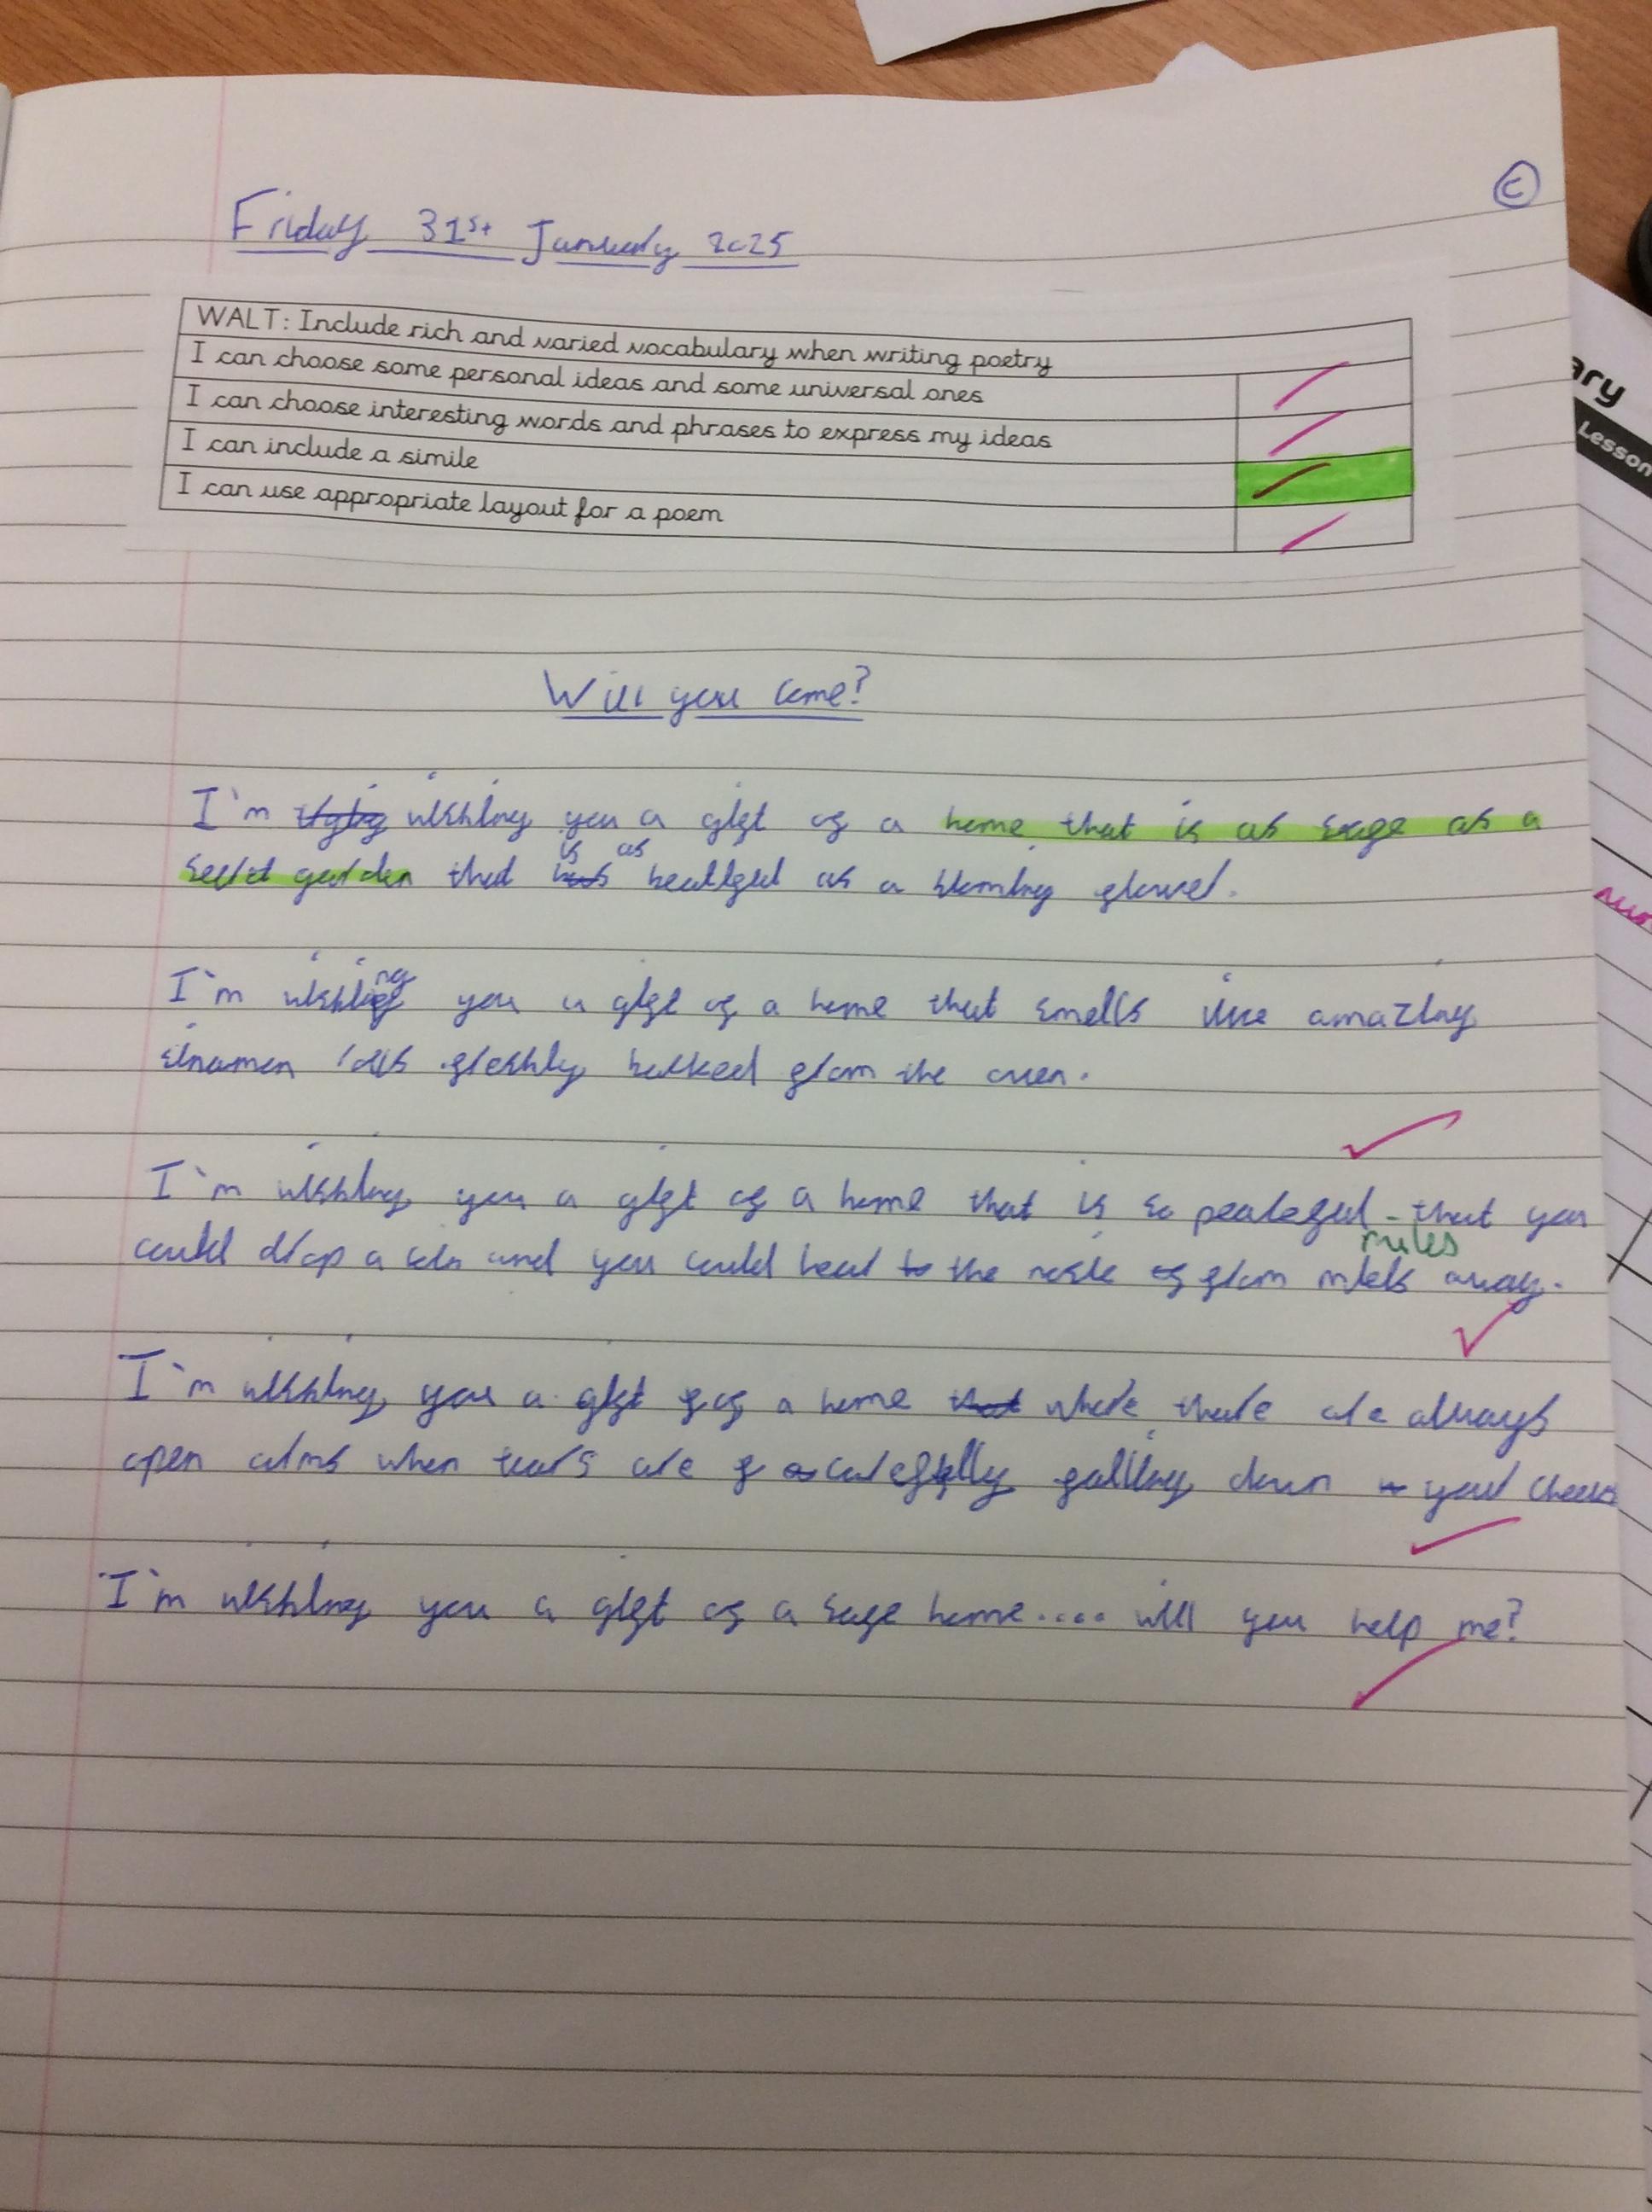 Friday 31st January 2025
C
WALT: Include rich and varied vocabulary when writing poetry
I can choose some personal ideas and some universal ones
I can choose interesting words and phrases to express my ideas
I can include a simile
I can use appropriate layout for a poem
ary
Lesson
Will you come?
I'm wishing you a gift of a home that is as safe as a
secret garden that is as beatiful as a bloming flower.
I'm wishing you a gift of a home that smells like amazing
sinamon rolls freshly baked from the oven.
I'm wishing you a gift of a home that is so peaceful that you
could drop a coin and you could hear the nosie from miles away.
miles
I'm wishing you a gift of a home where there are always
open arms when tears are carefully falling down your cheeks
I'm wishing you a gift of a safe home.... will you help me?